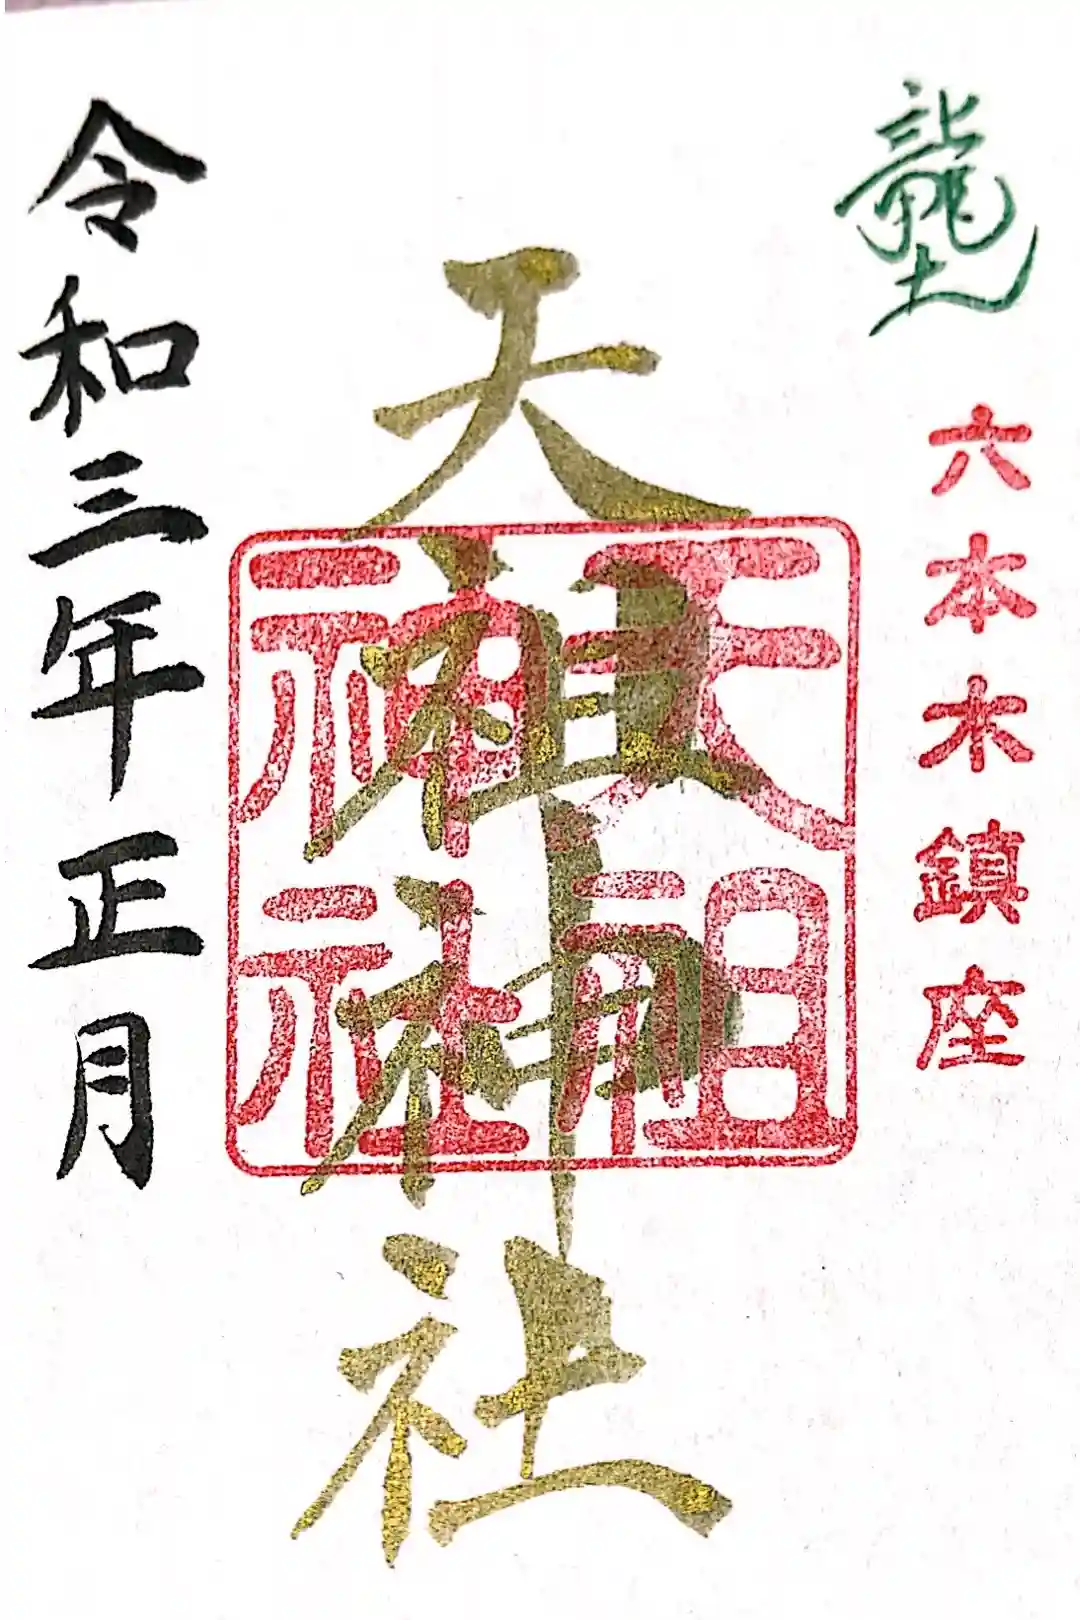 龍土
六本木鎮座
天祖神社
天祖神社
令和三年正月